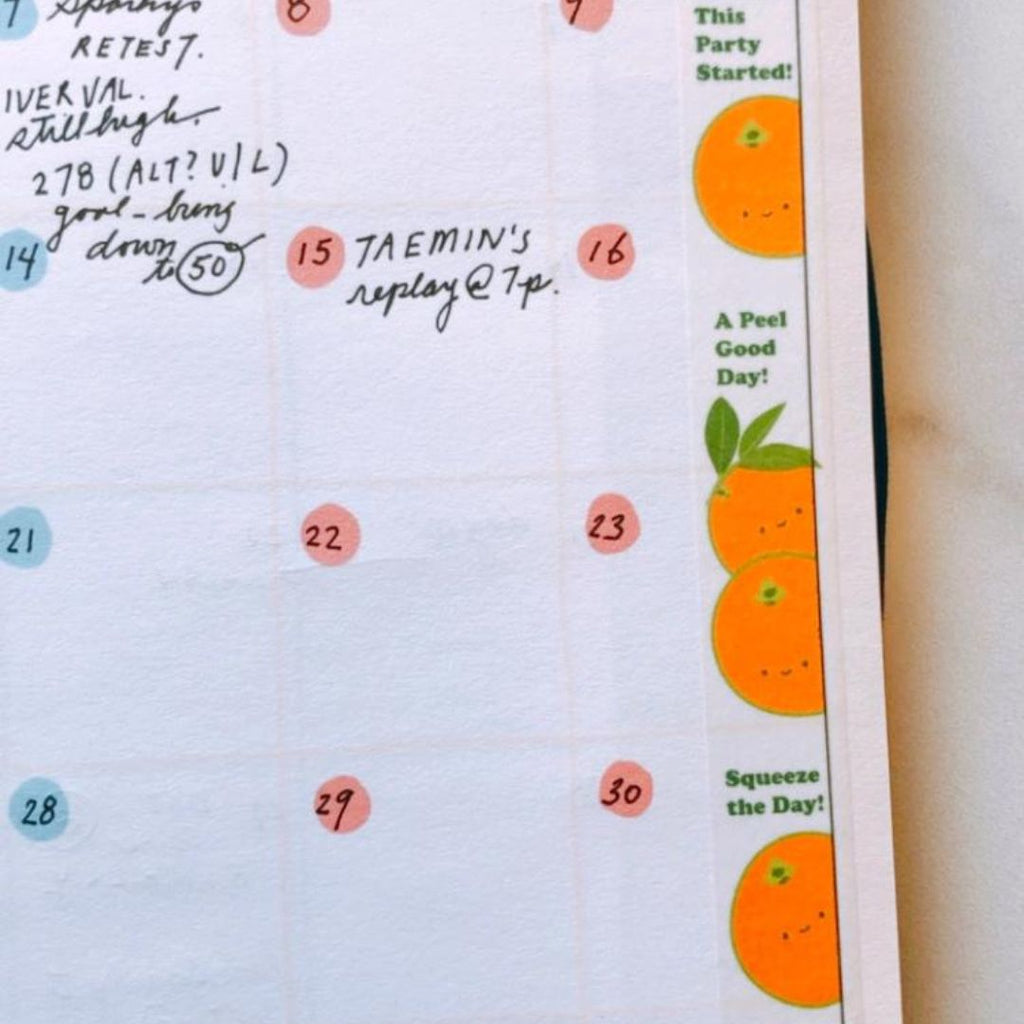 7 Sparky's
RETEST.
IVER VAL.
still high.
278 (ALT? U/L)
goal - bring
down
to 50
8
9
This
Party
Started!
14
15 TAEMIN'S
replay @ 7p.
16
A Peel
Good
Day!
21
22
23
28
29
30
Squeeze
the Day!